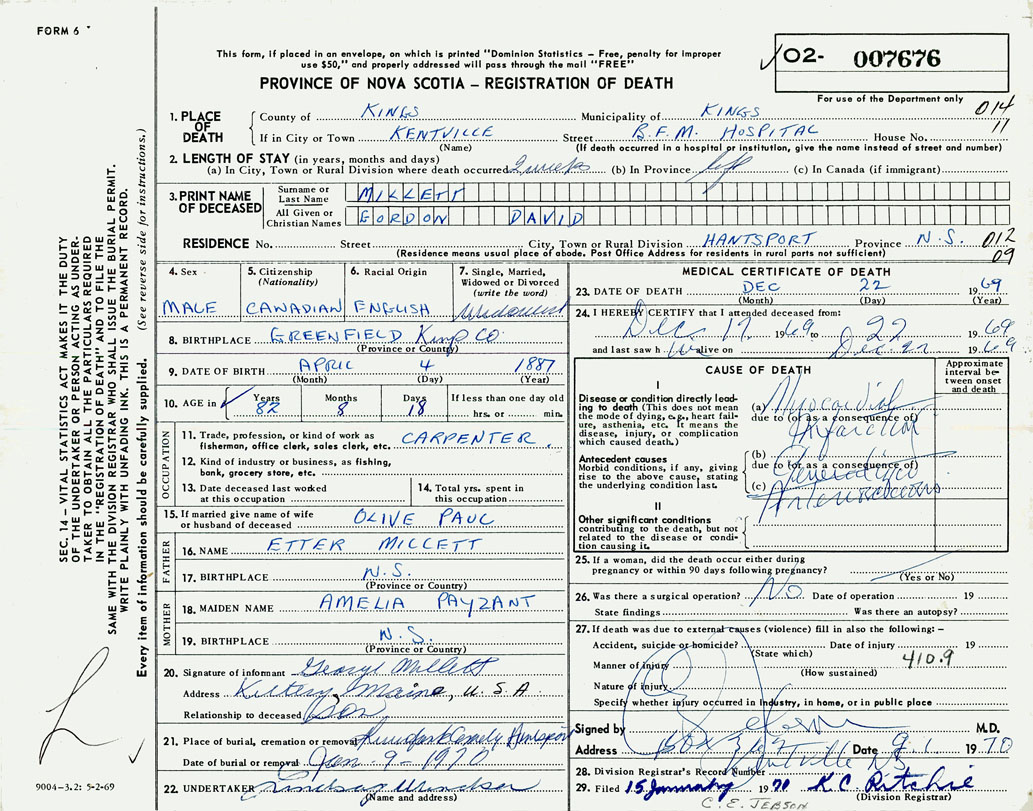 FORM 6
This form, if placed in an envelope, on which is printed "Dominion Statistics – Free, penalty for improper
use $50," and properly addressed will pass through the mail "FREE"
PROVINCE OF NOVA SCOTIA – REGISTRATION OF DEATH
02- 007676
For use of the Department only
014
11
1. PLACE OF DEATH
County of KINGS Municipality of KINGS
If in City or Town KENTVILLE Street B.F.M. HOSPITAL House No.
(Name) (If death occurred in a hospital or institution, give the name instead of street and number)
2. LENGTH OF STAY (in years, months and days)
(a) In City, Town or Rural Division where death occurred 2 weeks (b) In Province life (c) In Canada (if immigrant)
3. PRINT NAME OF DECEASED
Surname or Last Name MILLETT
All Given or Christian Names GORDON DAVID
RESIDENCE No. Street City, Town or Rural Division HANTSPORT Province N.S. 012
(Residence means usual place of abode. Post Office Address for residents in rural parts not sufficient) 09
4. Sex
MALE
5. Citizenship (Nationality)
CANADIAN
6. Racial Origin
ENGLISH
7. Single, Married, Widowed or Divorced (write the word)
8. BIRTHPLACE GREENFIELD Kings CO
(Province or Country)
9. DATE OF BIRTH APRIL 4 1887
(Month) (Day) (Year)
10. AGE in Years Months Days If less than one day old
82 8 18 hrs. or min.
OCCUPATION
11. Trade, profession, or kind of work as fisherman, office clerk, sales clerk, etc. CARPENTER
12. Kind of industry or business, as fishing, bank, grocery store, etc.
13. Date deceased last worked at this occupation
14. Total yrs. spent in this occupation
15. If married give name of wife or husband of deceased OLIVE PAUL
FATHER
16. NAME ETTER MILLETT
17. BIRTHPLACE N.S.
(Province or Country)
MOTHER
18. MAIDEN NAME AMELIA PAYZANT
19. BIRTHPLACE N.S.
(Province or Country)
20. Signature of informant George Millett
Address Kittery, Maine, U.S.A.
Relationship to deceased Son
21. Place of burial, cremation or removal Hantsport
Date of burial or removal Jan - 9 - 1970
22. UNDERTAKER Lindsay Windsor
(Name and address)
MEDICAL CERTIFICATE OF DEATH
23. DATE OF DEATH DEC 22 1969
(Month) (Day) (Year)
24. I HEREBY CERTIFY that I attended deceased from:
Dec 17 1969 to 22 1969
and last saw h alive on Dec. 22 1969
CAUSE OF DEATH
Approximate interval between onset and death
I
Disease or condition directly leading to death (This does not mean the mode of dying, e.g., heart failure, asthenia, etc. It means the disease, injury, or complication which caused death.)
(a) Myocardial
due to (or as a consequence of)
Infarction
Antecedent causes
Morbid conditions, if any, giving rise to the above cause, stating the underlying condition last.
(b)
due to (or as a consequence of)
Generalized
(c) Arteriosclerosis
II
Other significant conditions
contributing to the death, but not related to the disease or condition causing it.
25. If a woman, did the death occur either during pregnancy or within 90 days following pregnancy?
(Yes or No)
26. Was there a surgical operation? No Date of operation 19
State findings Was there an autopsy?
27. If death was due to external causes (violence) fill in also the following:–
Accident, suicide or homicide? Date of injury 19
(State which)
Manner of injury 410.9
(How sustained)
Nature of injury
Specify whether injury occurred in Industry, in home, or in public place
Signed by M.D.
Address Box Kentville NS Date 9.1 1970
28. Division Registrar's Record Number
29. Filed 15 January 1970 K C Ritchie
(Division Registrar)
C. E. JEBSON
SEC. 14 – VITAL STATISTICS ACT MAKES IT THE DUTY
OF THE UNDERTAKER OR PERSON ACTING AS UNDERTAKER
TO OBTAIN ALL THE PARTICULARS REQUIRED
IN THE "REGISTRATION OF DEATH" AND TO FILE THE
SAME WITH THE DIVISION REGISTRAR WHO SHALL ISSUE THE BURIAL PERMIT.
WRITE PLAINLY WITH UNFADING INK. THIS IS A PERMANENT RECORD.
Every item of information should be carefully supplied. (See reverse side for instructions.)
9004-3.2: 5-2-69